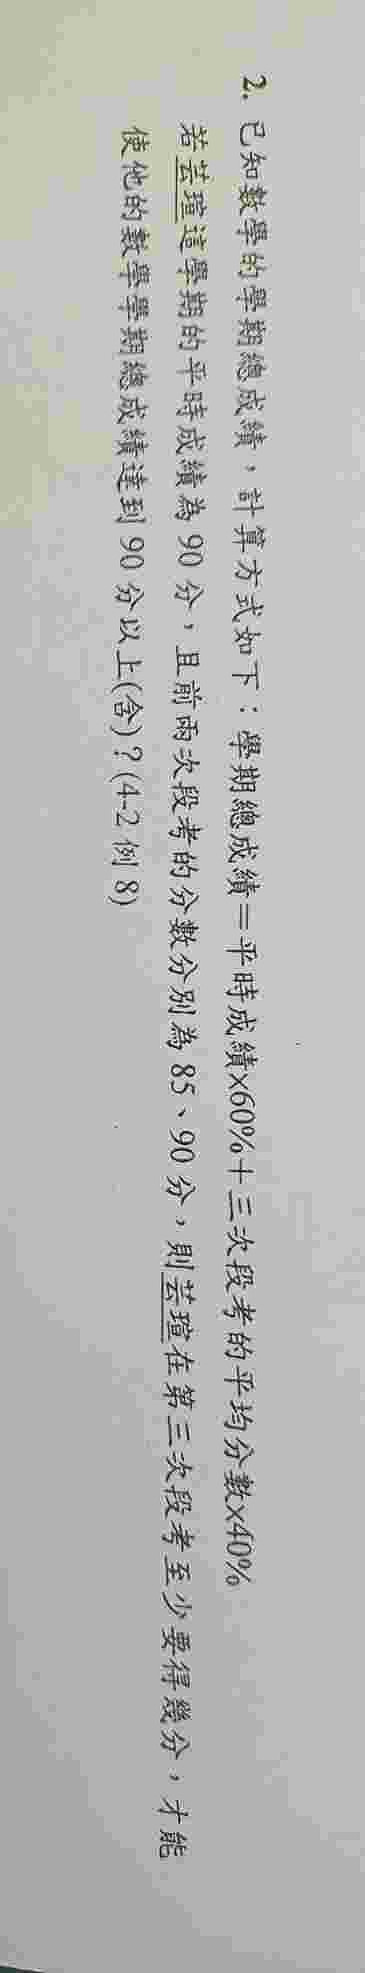 2. 已知數學的學期總成績，計算方式如下：學期總成績＝平時成績×60%＋三次段考的平均分數×40%
若芸瑄這學期的平時成績為 90 分，且前兩次段考的分數分別為 85、90 分，則芸瑄在第三次段考至少要得幾分，才能
使他的數學學期總成績達到 90 分以上(含)？(4-2 例 8)